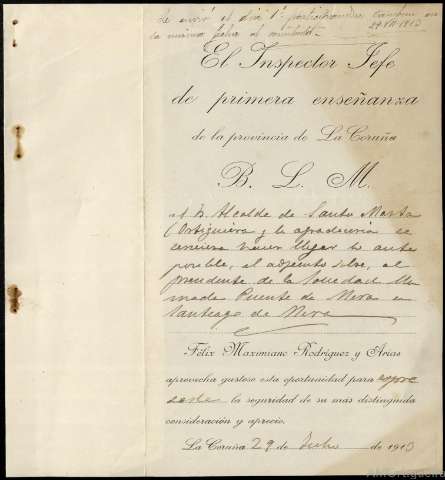 Se envió el día 1º
la misma fecha al
29 VII 1913
El Inspector Jefe
de primera enseñanza
de la provincia de La Coruña
B. L. M.
al Sr. Alcalde de Santa Marta
Ortigueira y le agradecería se
sirviera hacer llegar lo antes
posible, el adjunto sobre, al
presidente de la Sociedad lla
mada Puente de Mera en
Santiago de Mera
Félix Maximiano Rodríguez y Arias
aprovecha gustoso esta oportunidad para expre
sarle la seguridad de su más distinguida
consideración y aprecio.
La Coruña 29 de Julio de 1913